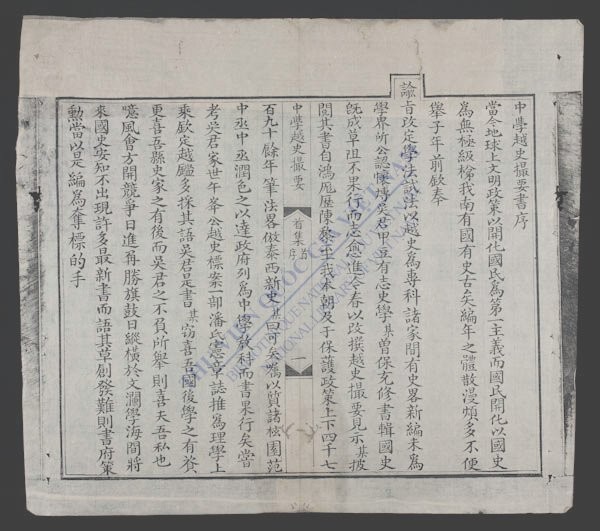 中學越史撮要書序
當今地球上文明政策以開化國民為第一主義而國民開化以國史
為無極級梯我南有國有史古矣編年之體散漫煩多不便
舉子年前欽奉
諭旨改定學法試法以越史為專科諸家間有史略新編未為
學界所公認懷博吳君甲豆有志史學其曾保充修書輯國史
既成草徂不果行而志愈進今春以改撰越史撮要見示其披
閱其書自鴻厖歷陳黎至我本朝及于保護政策上下四千七
中學越史撮要
首集
序
一
百九十餘年筆法畧倣泰西新史其曰可矣嘱以質諸桉園范
中丞中丞潤色之以達政府列為中學教科而書果行矣嘗
考吳君家世午峯公越史標案一部潘氏憲章誌推為理學上
乘欽定越鑑多採其語吳君是書其窃喜吾國後學之有裨
更喜吾縣史家之有後而吳君之不負所舉則喜夫吾私也
噫風會方開競爭日進再勝旗鼓日縱橫於文瀾學海間將
來國史安知不出現許多最新書而語其草創發難則書府策
勳當以是編為奪標的手
THƯ VIỆN QUỐC GIA VIỆT NAM
NATIONAL LIBRARY OF VIETNAM